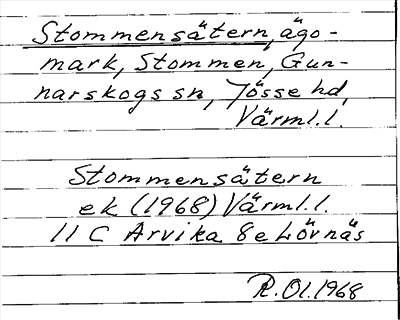 Stommensätern, ägo-
mark, Stommen, Gun-
narskogs sn, Jösse hd,
Värml.l.
Stommensätern
ek (1968) Värml.l.
11 C Arvika 8e Lövnäs
R.Ol.1968